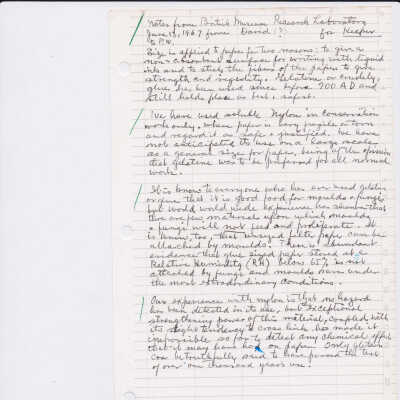 Notes from British Museum Research Laboratory
June 13, 1967 from David ? for Keeper
to P.W.
Size is applied to paper for two reasons: to give a
non-absorbent surface for writing with liquid
inks and to stick the fibres of the papers to give
strength and rigidity. Gelatine or crudely,
glue has been used since before 700 AD and
still holds place as best & safest.
I've have used soluble nylon in conservation
work only, where paper is very fragile or torn
and regard it as safe & justified. We have
not anticipated its use on a large scale
as a general size for paper, being of the opinion
that gelatine was to be preferred for all normal
work.
It is known to everyone who has ever used gelatine
or glue that it is good food for moulds & fungi
but world wide experience has shown that
there are few materials upon which moulds
& fungi will not feed and proliferate. It
is known, too, that unsized filter paper can be
attacked by moulds. There is abundant
evidence that glue sized paper stored at a
Relative Humidity (RH) below 65% is not
attacked by fungi and moulds even under
the most extraordinary conditions.
Our experience with nylon is that no hazard
has been detected in its use, but exceptional
strengthening power of this material, coupled with
its slight tendency to cross link has made it
impossible so far to detect any chemical effect
that it may have had on paper. Only gelatine
can be truthfully said to have passed the test
of over one thousand years use.